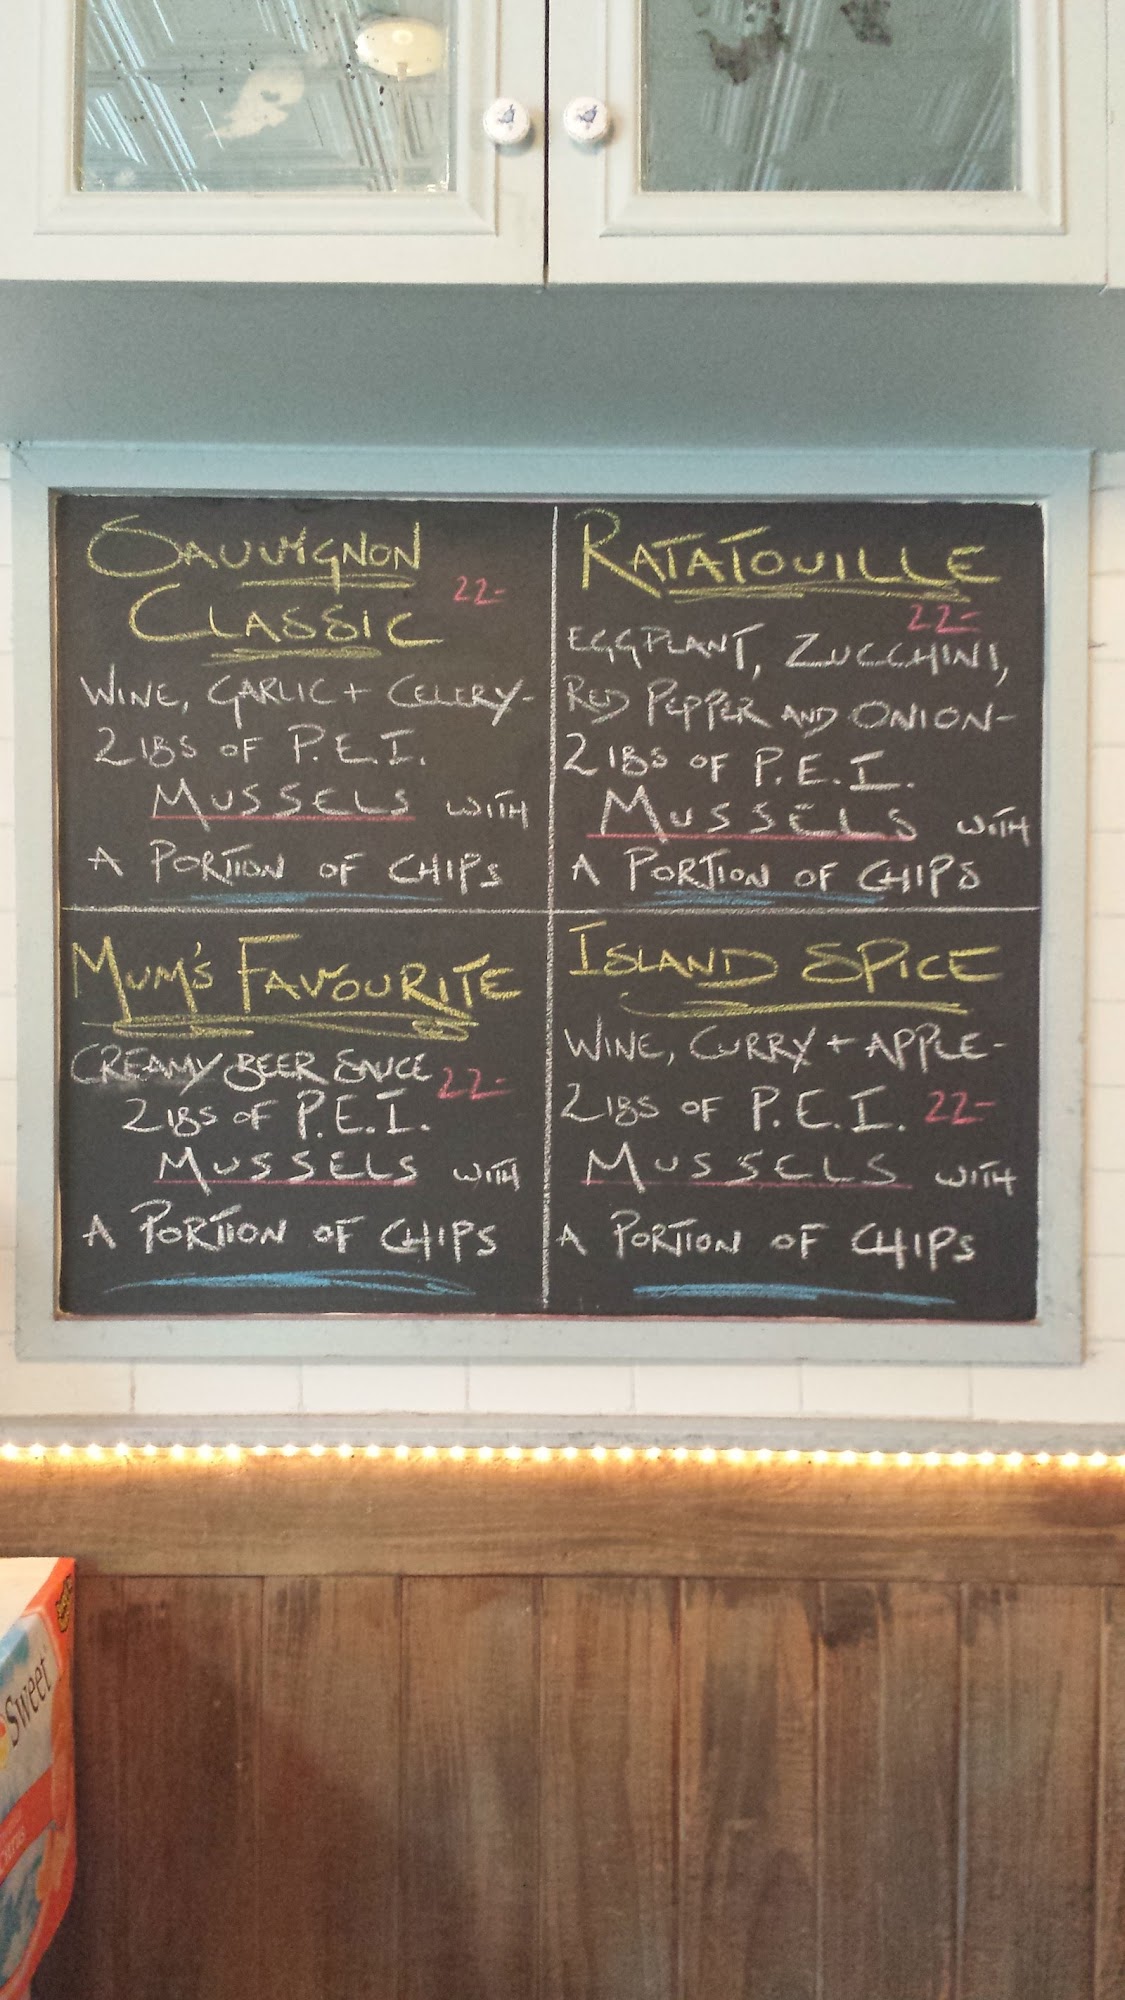 SAUVIGNON
CLASSIC
22-
WINE, GARLIC + CELERY-
2 lBS OF P.E.I.
MUSSELS WITH
A PORTION OF CHIPS
RATATOUILLE
22-
EGGPLANT, ZUCCHINI,
RED PEPPER AND ONION-
2 lBS OF P.E.I.
MUSSELS WITH
A PORTION OF CHIPS
MUM'S FAVOURITE
CREAMY BEER SAUCE 22-
2 lBS OF P.E.I.
MUSSELS WITH
A PORTION OF CHIPS
ISLAND SPICE
WINE, CURRY + APPLE-
2 lBS OF P.E.I. 22-
MUSSELS WITH
A PORTION OF CHIPS
Sweet